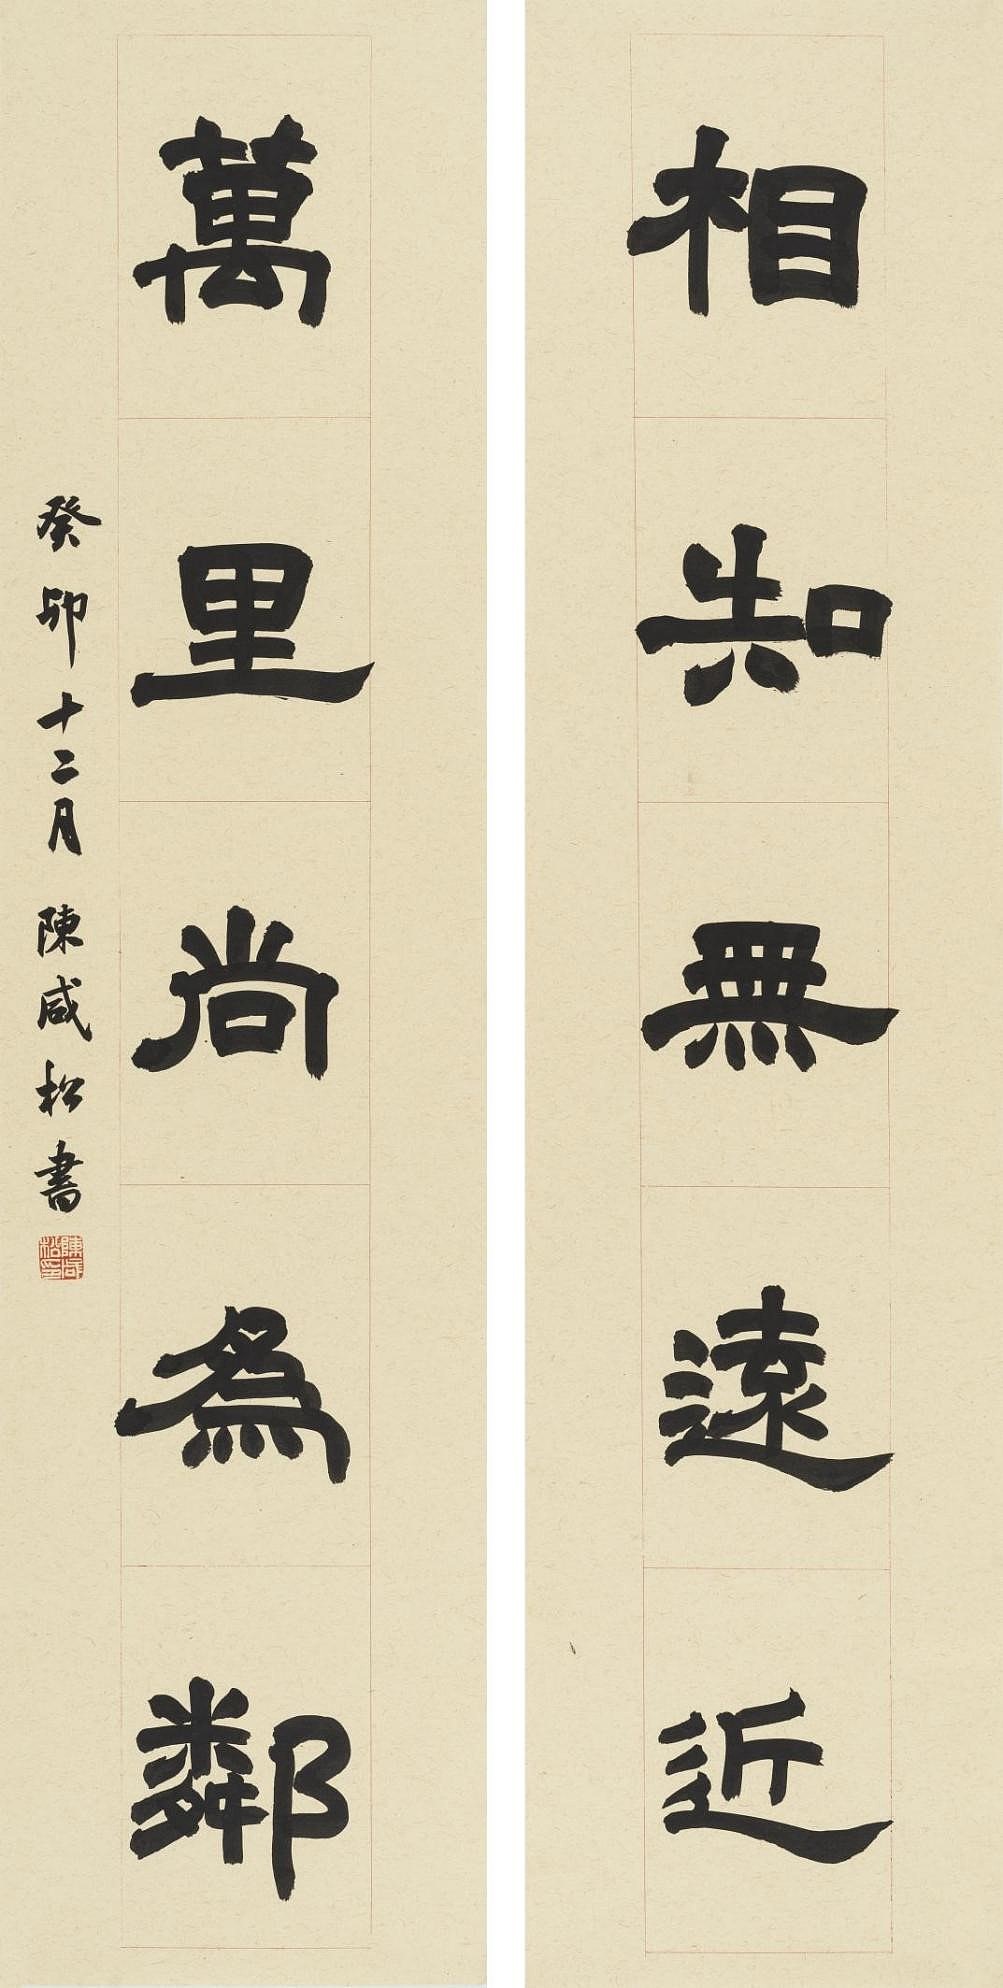 相知無遠近
萬里尚為鄰
癸卯十二月 陳咸松書
陳咸松印